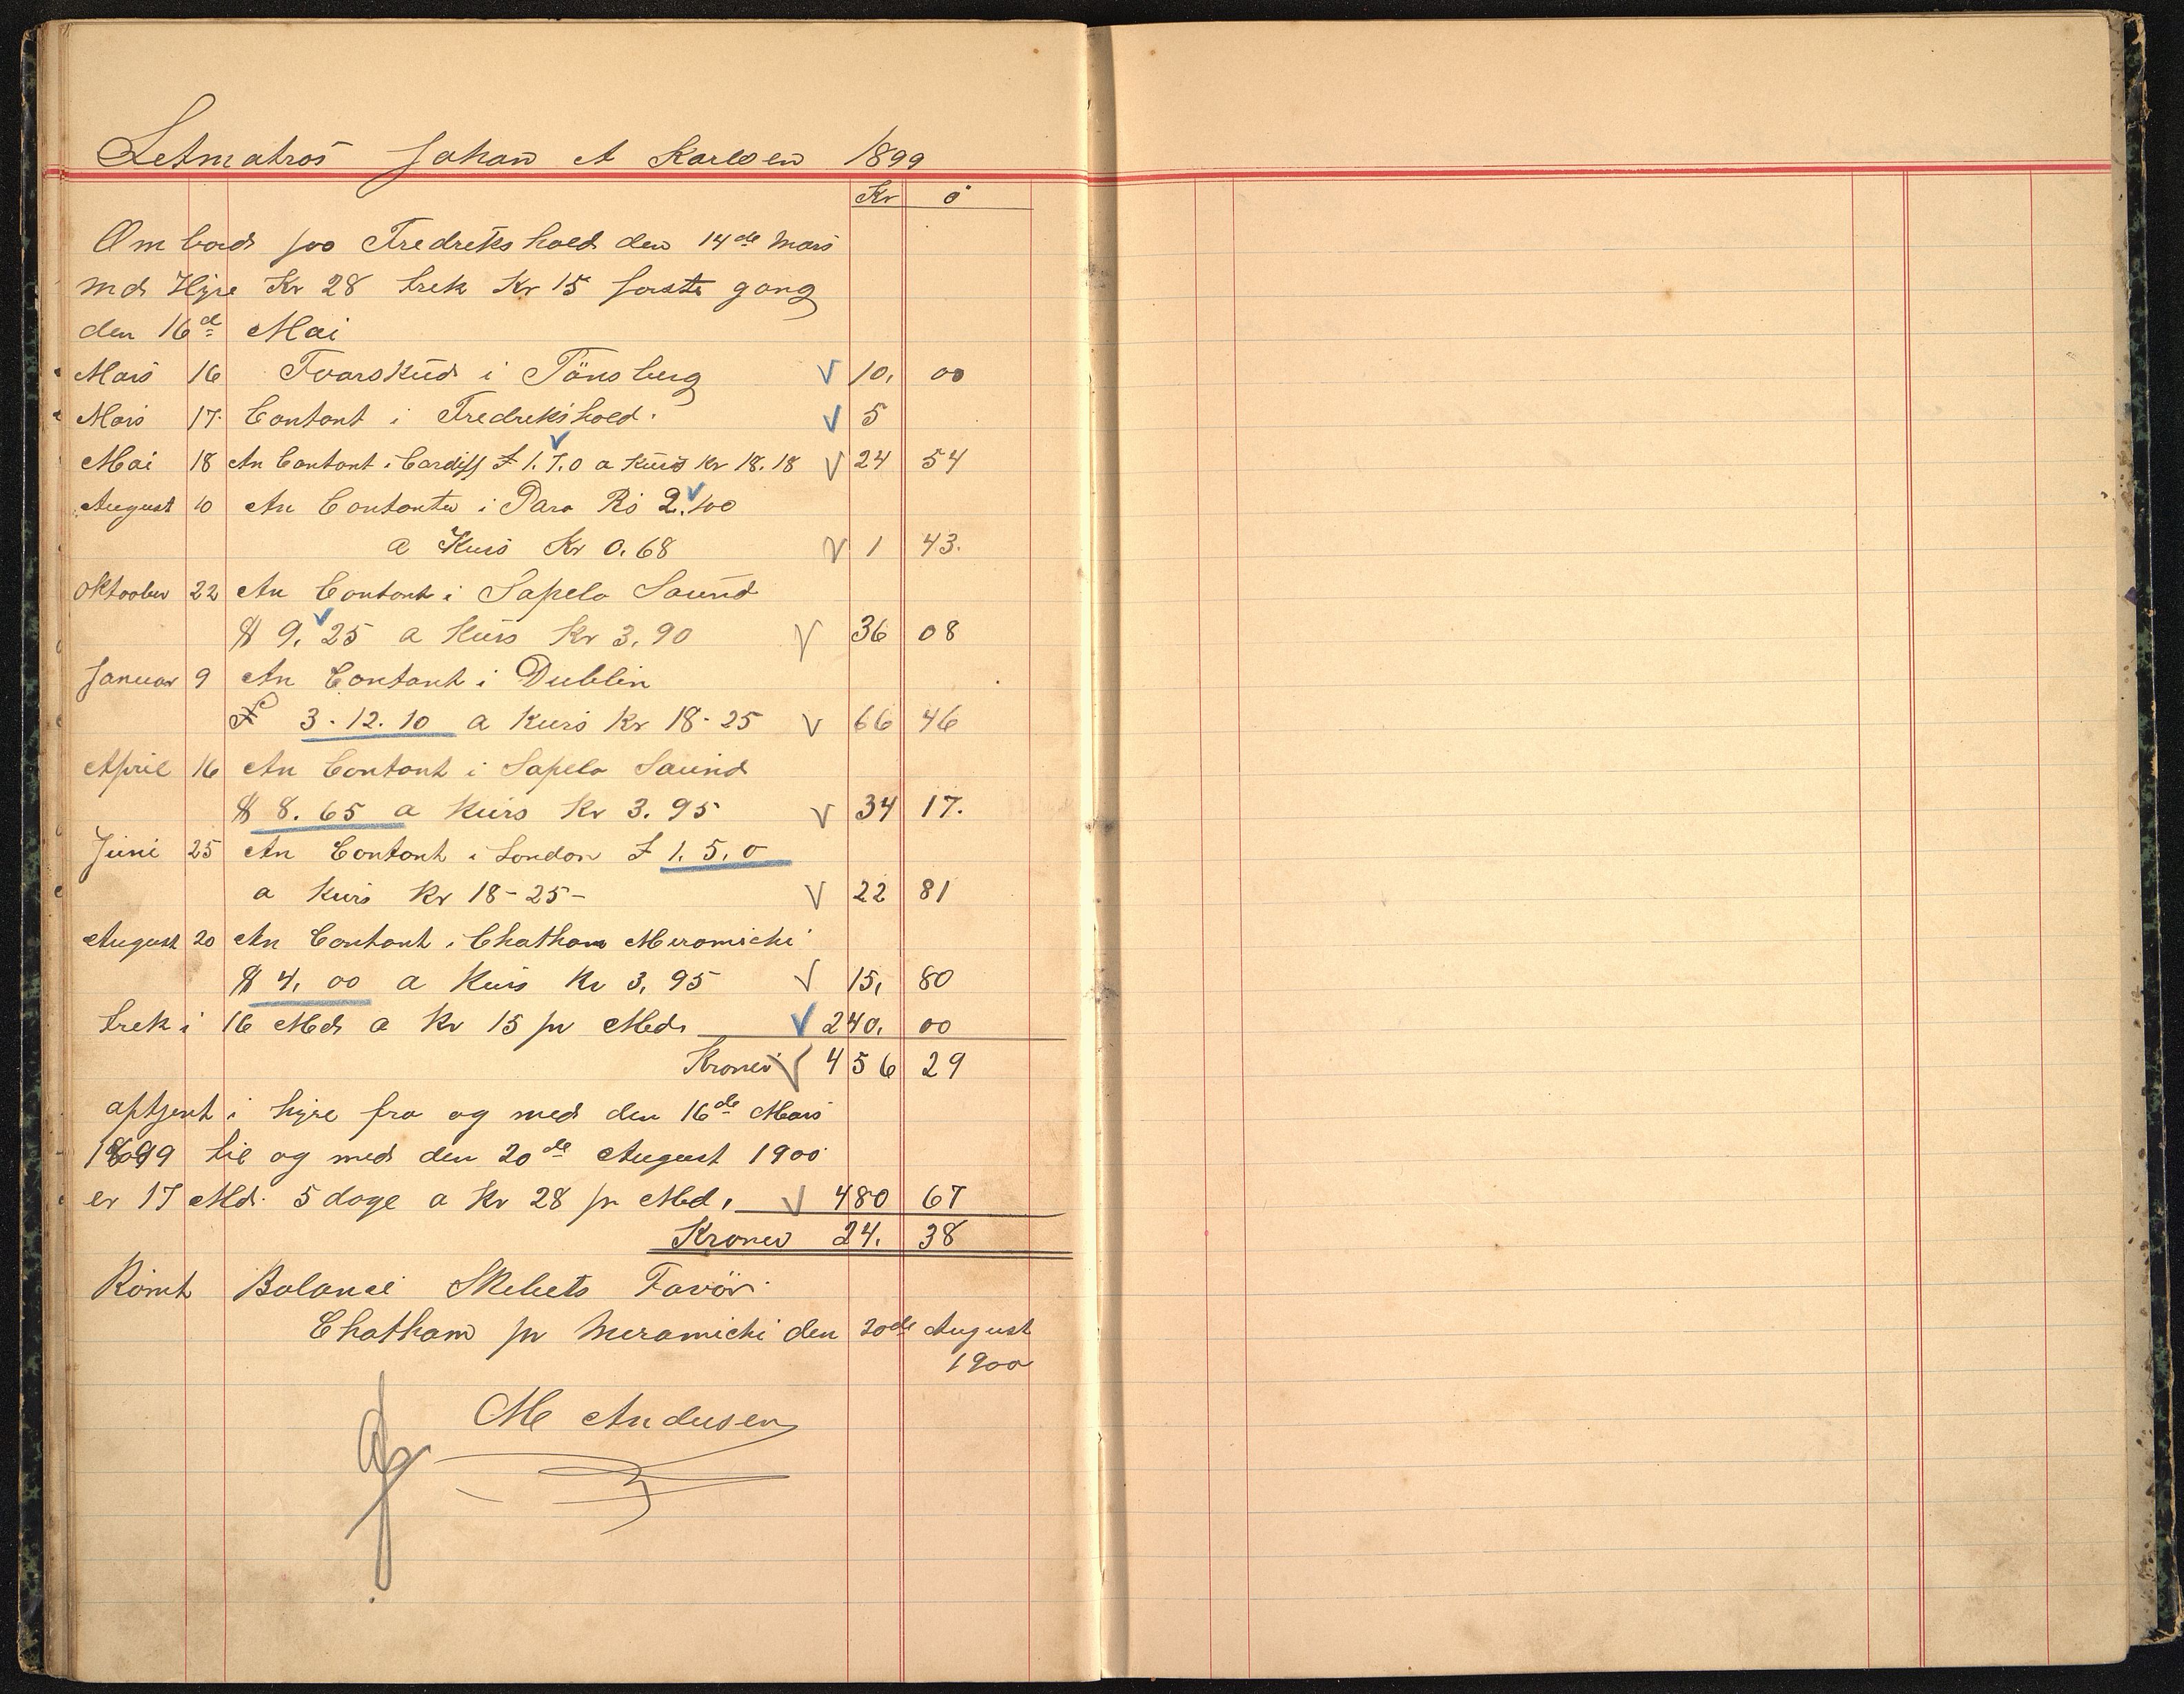 Letmatros Johan A Karlsen 1899
Kr ö
Om bord paa Fredrikshald den 14de Mars
md Hyre Kr 28 trek Kr 15 forste gang
den 16de Mai
Mars 16 Forskud i Tönsberg 10, 00
Mars 17 Contant i Fredrikshald. 5
Mai 18 An Contant i Cardiff £ 1.7.0 a Kurs Kr 18.18 24 54
August 10 An Contanter i Para Rs 2.100
a Kurs Kr 0.68 1 43.
Oktoober 22 An Contant i Sapelo Saund
$ 9.25 a Kurs Kr 3.90 36 08
Januar 9 An Contant i Dublin
£ 3.12.10 a Kurs Kr 18-25 66 46
April 16 An Contant i Sapelo Saund
$ 8.65 a Kurs Kr 3.95 34 17.
Juni 25 An Contant i London £ 1.5.0
a Kurs Kr 18-25- 22 81
August 20 An Contant i Chatham Meramichi
$ 4,00 a Kurs Kr 3,95 15, 80
trek i 16 Md a Kr 15 pr Md 240, 00
Kroner 456 29
aptjent i hyre fra og med den 16de Mars
1899 til og med den 20de August 1900
er 17 Md. 5 dage a Kr 28 pr Md, 480 67
Kroner 24. 38
Balance Skibets Favör.
Chatham pr Meramichi den 20de August
1900
M Andersen